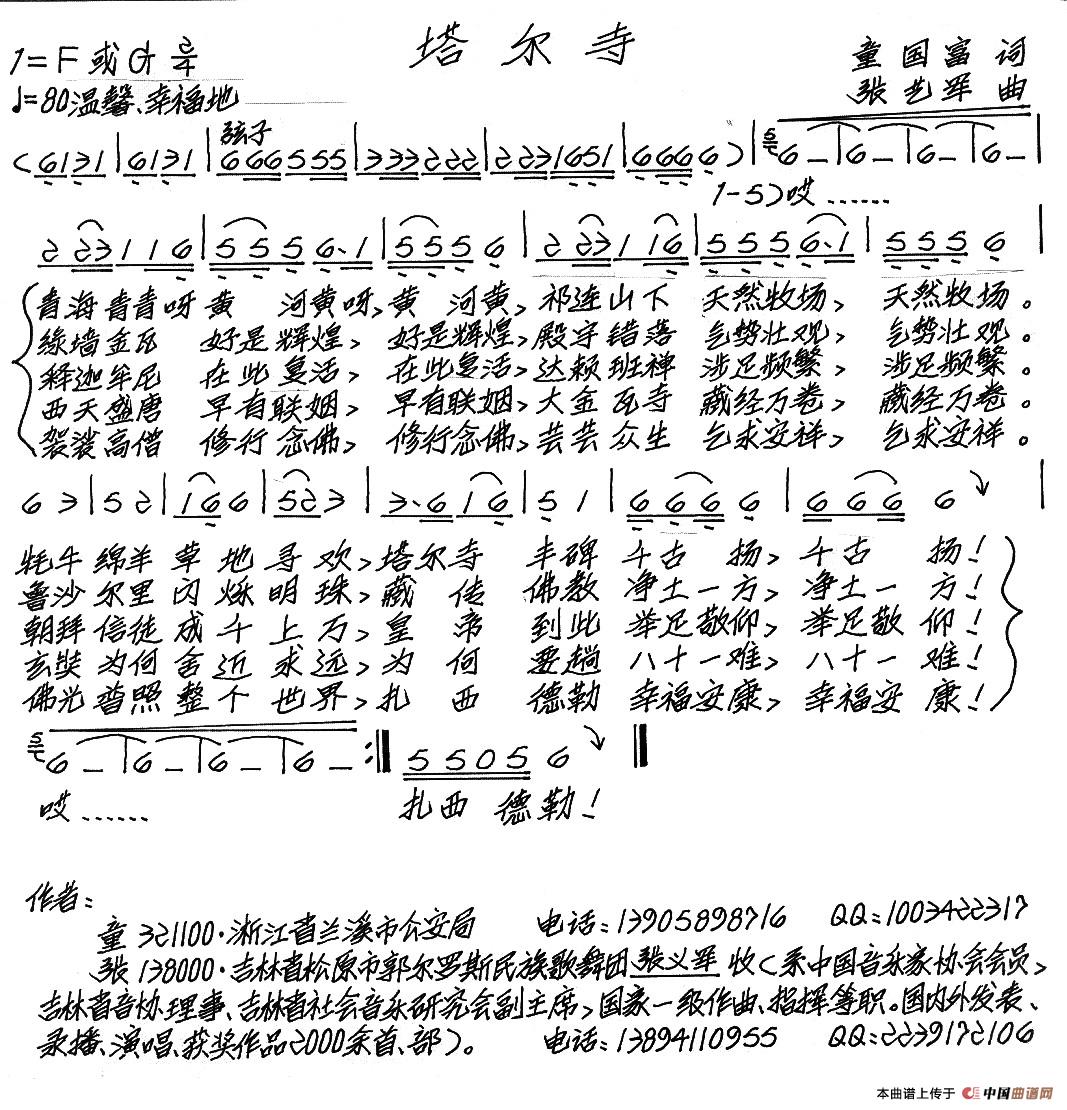 塔尔寺
1=F或G 2/4
童国富 词
♩=80温馨、幸福地
张艺军 曲
弦子
(6131|6131|666555|333222|2231651|6666)|6–|6–|6–|6–|
1-5)哎……
2 23 1 1 6|5 5 5 6·1|5 5 5 6|2 23 1 16|5 5 5 6·1|5 5 5 6|
青海青青呀黄 河黄呀,黄 河黄,祁连山下 天然牧场, 天然牧场。
绿墙金瓦 好是辉煌, 好是辉煌,殿宇错落 气势壮观, 气势壮观。
释迦牟尼 在此复活, 在此复活,达赖班禅 涉足频繁, 涉足频繁。
西天盛唐 早有联姻, 早有联姻,大金瓦寺 藏经万卷, 藏经万卷。
袈裟高僧 修行念佛, 修行念佛,芸芸众生 乞求安祥, 乞求安祥。
6 3|5 2|1 6 6|5 2 3|3·6 1 6|5 1|6 6 6 6|6 6 6 6|
牦牛绵羊草地寻欢,塔尔寺 丰碑 千古 扬, 千古 扬!
鲁沙尔里闪烁明珠,藏 传 佛教 净土一方, 净土一 方!
朝拜信徒成千上万,皇 帝 到此 举足敬仰, 举足敬 仰!
玄奘为何舍近求远,为 何 要趟 八十一难, 八十一 难!
佛光普照整个世界,扎 西 德勒 幸福安康, 幸福安 康!
6–|6–|6–|6–:‖5 5 0 5 6‖
哎…… 扎西 德勒!
作者:
童 321100·浙江省兰溪市公安局 电话:13905898716 QQ:1003422317
张 138000·吉林省松原市郭尔罗斯民族歌舞团 张义军 收(系中国音乐家协会会员,
吉林省音协理事、吉林省社会音乐研究会副主席,国家一级作曲、指挥等职。国内外发表、
录播、演唱、获奖作品2000余首、部)。 电话:13894110955 QQ:2239172106
本曲谱上传于 中国曲谱网